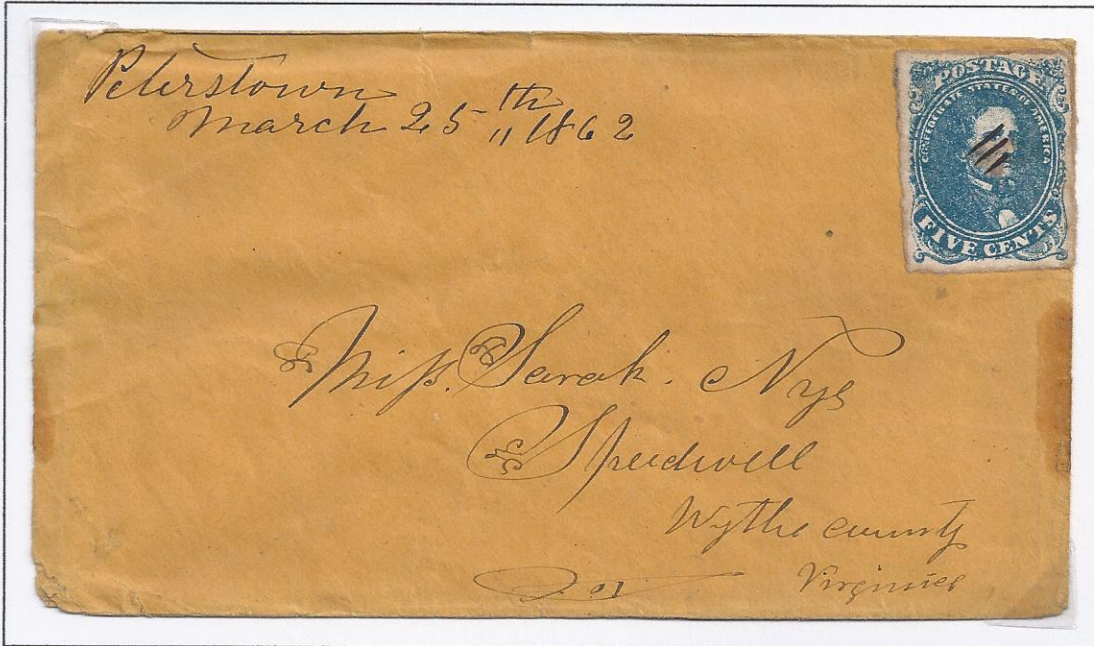 Peterstown
March 25th 1862
POSTAGE
CONFEDERATE STATES OF AMERICA
FIVE CENTS
Miss. Sarah. Nye
Speedwell
Wythe county
Virginia